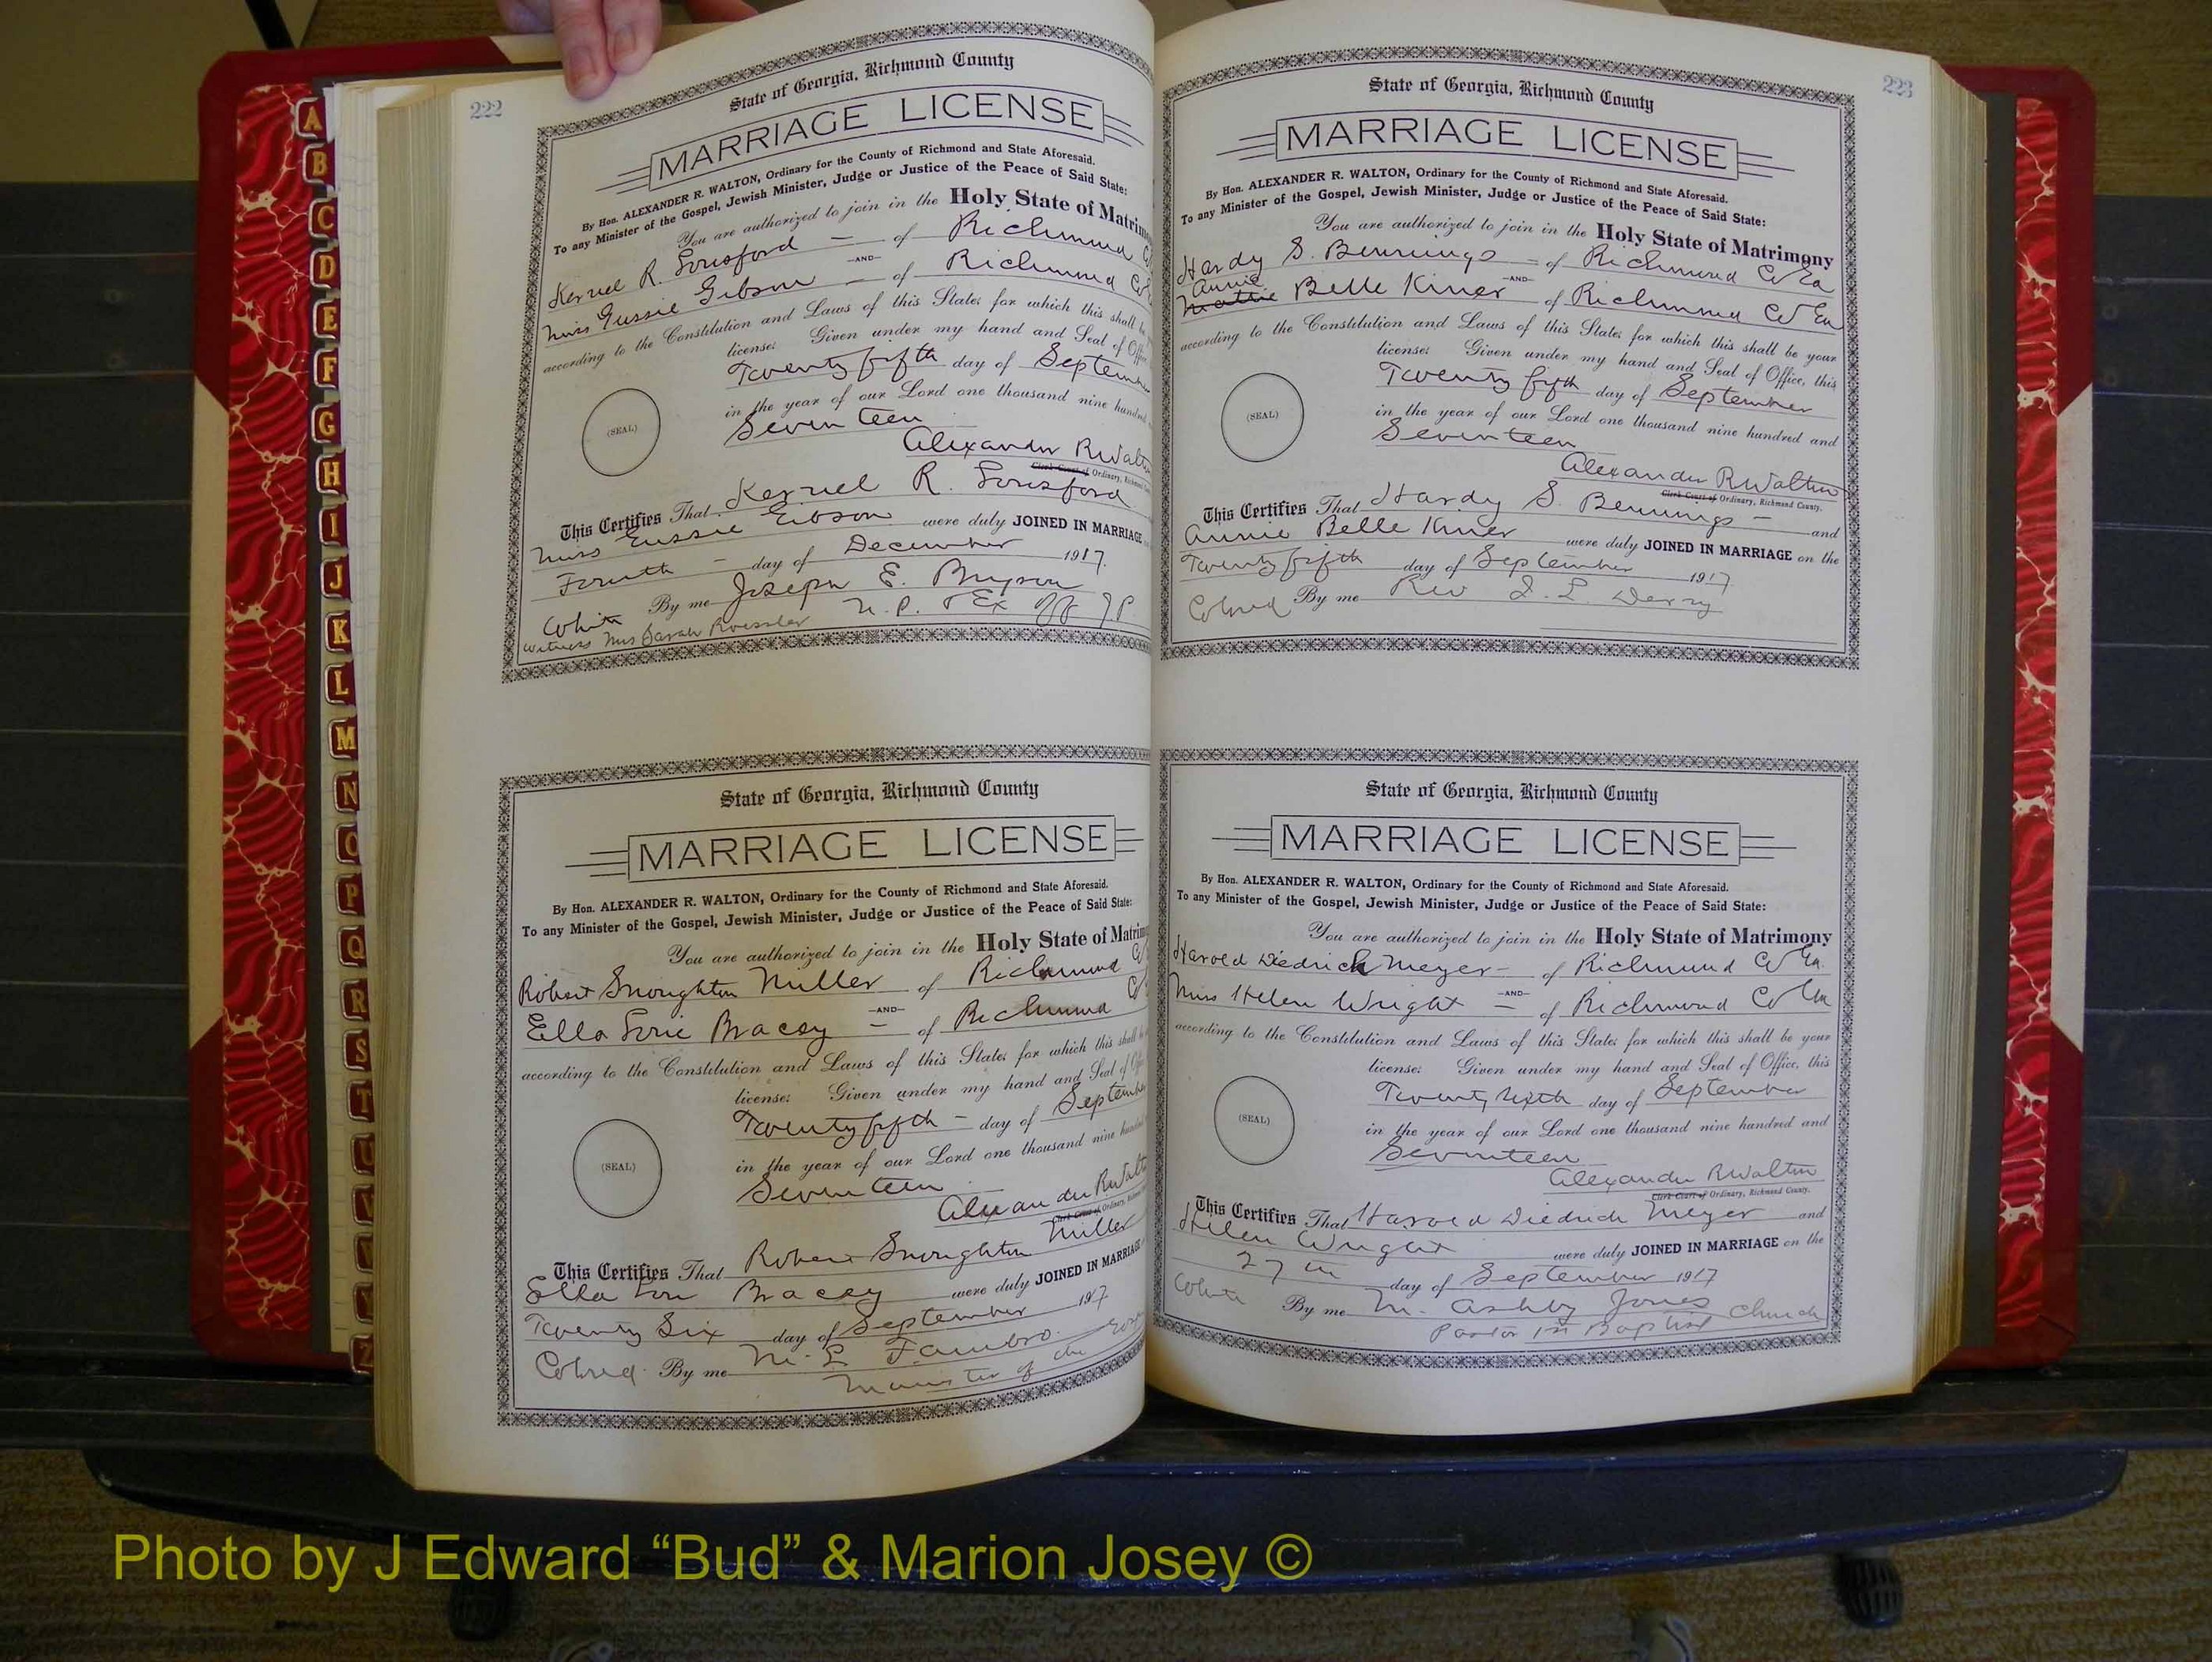 222
State of Georgia, Richmond County
MARRIAGE LICENSE
By Hon. ALEXANDER R. WALTON, Ordinary for the County of Richmond and State Aforesaid.
To any Minister of the Gospel, Jewish Minister, Judge or Justice of the Peace of Said State:
You are authorized to join in the Holy State of Matrim
R. of Richmond
—AND—
Miss Gussie Gibson — of Richmond Co
according to the Constitution and Laws of this State; for which this shall be
license; Given under my hand and Seal of Offi
Twenty fifth day of Septembe
in the year of our Lord one thousand nine hundred
Seventeen
(SEAL)
Alexander R Walton
Clerk Court of Ordinary, Richmond
This Certifies That R.
Miss Gussie Gibson were duly JOINED IN MARRIAGE
Fourth — day of December 1917.
White By me Joseph E. Bryson
Witness Mrs Sarah Roessler N. P. & Ex Off J.P.
State of Georgia, Richmond County
MARRIAGE LICENSE
By Hon. ALEXANDER R. WALTON, Ordinary for the County of Richmond and State Aforesaid.
To any Minister of the Gospel, Jewish Minister, Judge or Justice of the Peace of Said State:
You are authorized to join in the Holy State of Matrim
Robert Miller of Richmond C
—AND—
Ella Bracey — of Richmond Co
according to the Constitution and Laws of this State; for which this shall
license; Given under my hand and Seal of Offi
Twenty fifth — day of September
in the year of our Lord one thousand nine hund
Seventeen
(SEAL)
Alexander R Walt
Clerk Court of Ordinary, Richmond
This Certifies That Robert Miller
Ella Bracey were duly JOINED IN MARRIAGE
Twenty Six day of September 1917
Colored By me M. L. Fambro
Minister of the
223
State of Georgia, Richmond County
MARRIAGE LICENSE
By Hon. ALEXANDER R. WALTON, Ordinary for the County of Richmond and State Aforesaid.
To any Minister of the Gospel, Jewish Minister, Judge or Justice of the Peace of Said State:
You are authorized to join in the Holy State of Matrimony
Hardy S. Bennings — of Richmond Co Ga
Annie —AND—
Mattie Belle Kiner of Richmond Co Ga
according to the Constitution and Laws of this State; for which this shall be your
license; Given under my hand and Seal of Office, this
Twenty fifth day of September
in the year of our Lord one thousand nine hundred and
Seventeen
(SEAL)
Alexander R Walton
Clerk Court of Ordinary, Richmond County.
This Certifies That Hardy S. Bennings — and
Annie Belle Kiner were duly JOINED IN MARRIAGE on the
Twenty fifth day of September 1917
Colored By me Rev Derry
State of Georgia, Richmond County
MARRIAGE LICENSE
By Hon. ALEXANDER R. WALTON, Ordinary for the County of Richmond and State Aforesaid.
To any Minister of the Gospel, Jewish Minister, Judge or Justice of the Peace of Said State:
You are authorized to join in the Holy State of Matrimony
Harold Diedrich Meyer — of Richmond Co Ga.
—AND—
Miss Helen Wright — of Richmond Co Ga
according to the Constitution and Laws of this State; for which this shall be your
license; Given under my hand and Seal of Office, this
Twenty sixth day of September
in the year of our Lord one thousand nine hundred and
Seventeen
(SEAL)
Alexander R Walton
Clerk Court of Ordinary, Richmond County.
This Certifies That Harold Diedrich Meyer and
Helen Wright were duly JOINED IN MARRIAGE on the
27 th day of September 1917
White By me M. Ashby Jones
Pastor 1st Baptist Church
A
B
C
D
E
F
G
H
I
J
K
L
M
N
O
P
Q
R
S
T
U
V
W
Y
Z
Photo by J Edward “Bud” & Marion Josey ©